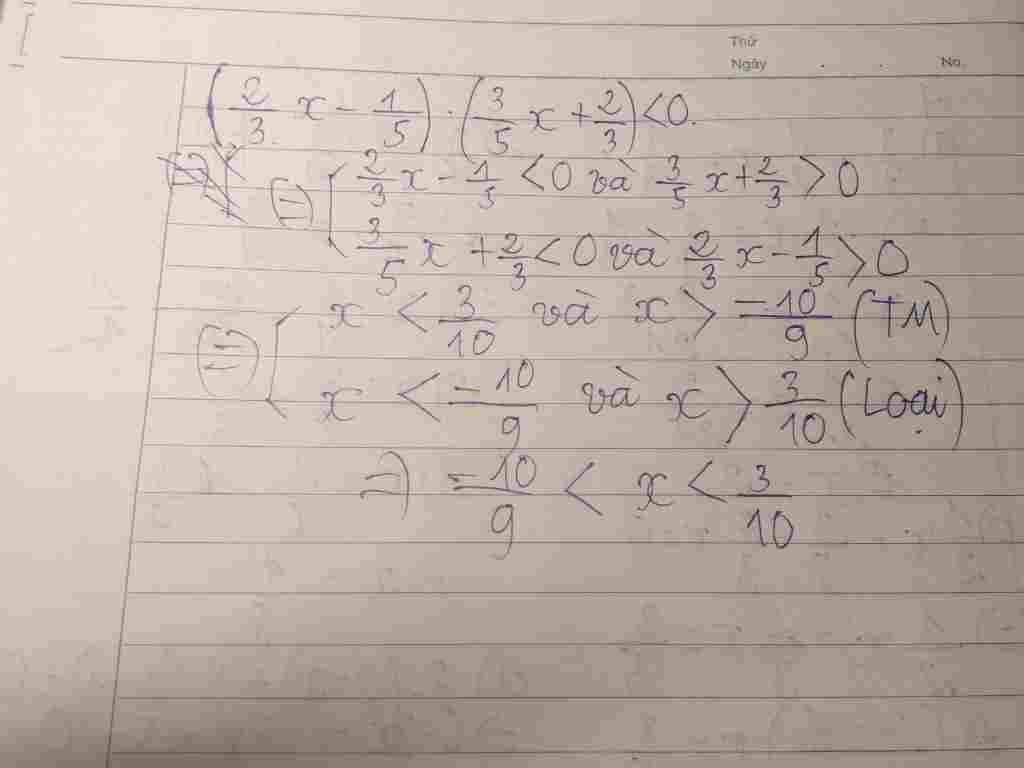 Thứ
Ngày . . No.
(2/3 x - 1/5) . (3/5 x + 2/3) < 0.
(=) [ 2/3 x - 1/5 < 0 và 3/5 x + 2/3 > 0
3/5 x + 2/3 < 0 và 2/3 x - 1/5 > 0
(=) [ x < 3/10 và x > -10/9 (TM)
x < -10/9 và x > 3/10 (Loại)
=) -10/9 < x < 3/10